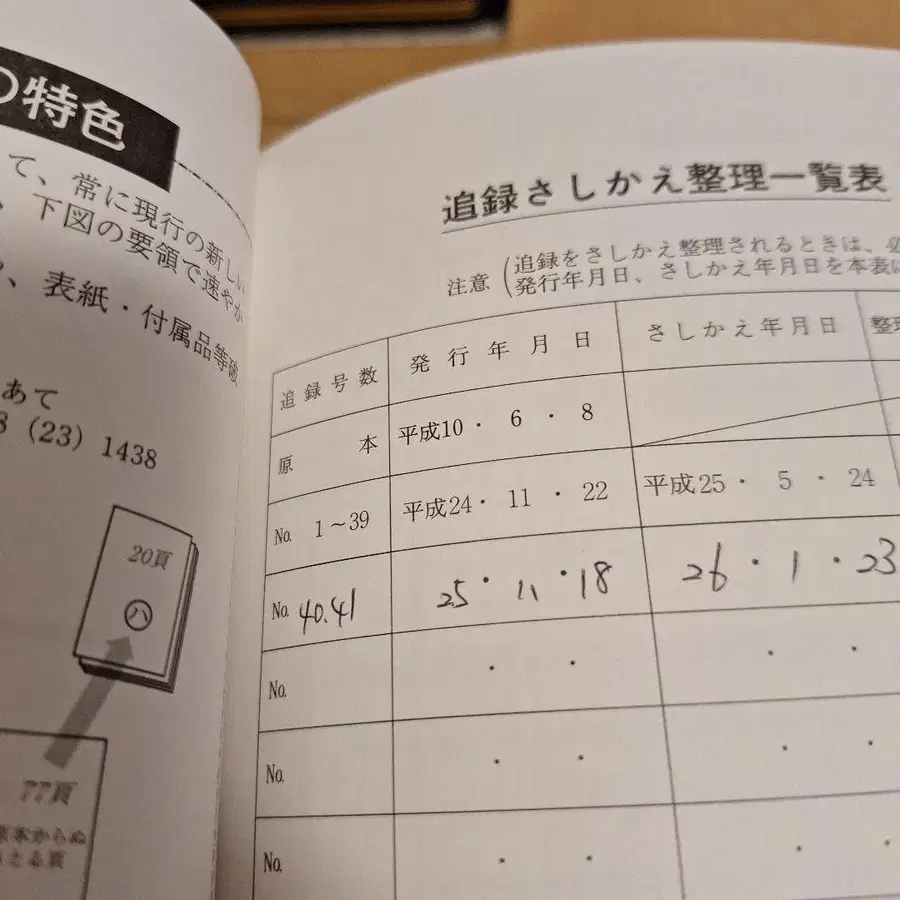 の特色
て、常に現行の新しい
、下図の要領で速やか
、表紙・付属品等破
あて
(23) 1438
20頁
ハ
77頁
原本からぬ
きとる頁
追録さしかえ整理一覧表
注意
追録をさしかえ整理されるときは、必
発行年月日、さしかえ年月日を本表に
追録号数 発行年月日 さしかえ年月日 整理
原本 平成10・6・8
No. 1～39 平成24・11・22 平成25・5・24
No. 40.41 25・11・18 26・1・23
No. ・ ・ ・ ・
No. ・ ・ ・ ・
No. ・ ・ ・ ・